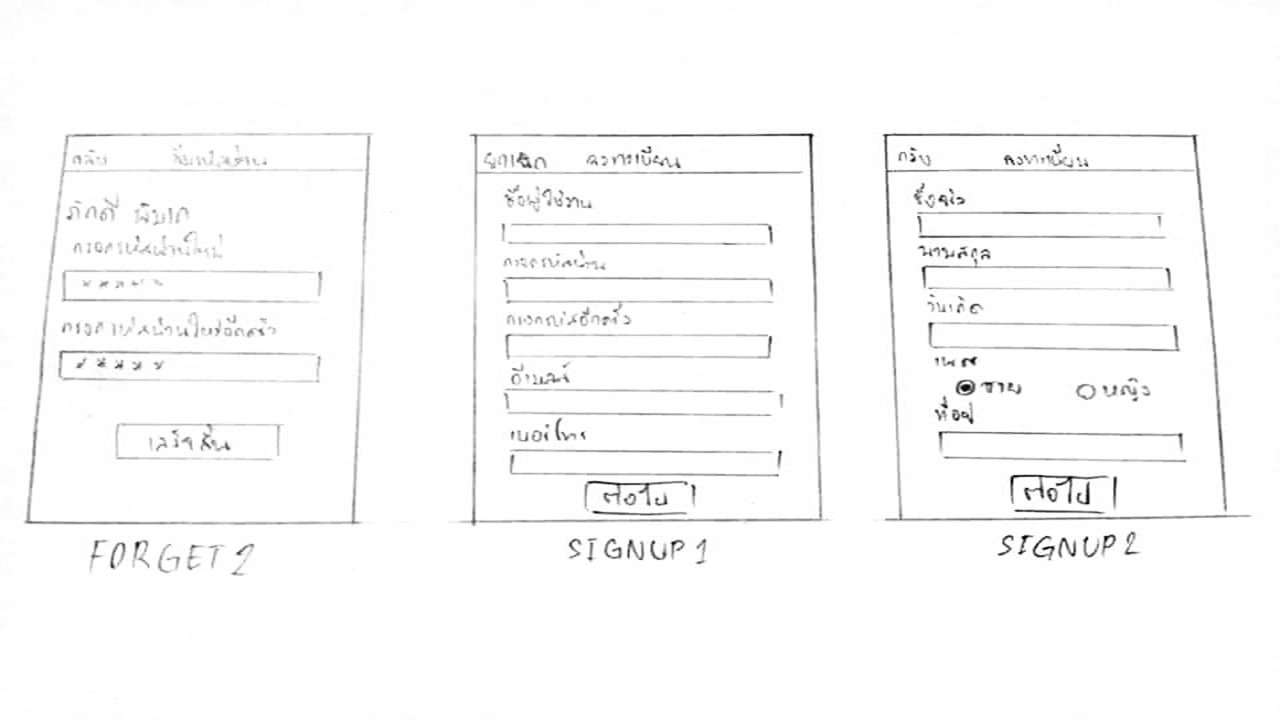 กลับ ลืมรหัสผ่าน
ภักดี
กรอกรหัสผ่านใหม่
*****
กรอกรหัสผ่านใหม่อีกครั้ง
*****
เสร็จสิ้น
FORGET 2
ยกเลิก ลงทะเบียน
ชื่อผู้ใช้งาน
กรอกรหัสผ่าน
กรอกรหัสอีกครั้ง
อีเมลล์
เบอร์โทร
ต่อไป
SIGNUP 1
กลับ ลงทะเบียน
ชื่อจริง
นามสกุล
วันเกิด
เพศ
ชาย หญิง
ที่อยู่
ต่อไป
SIGNUP 2